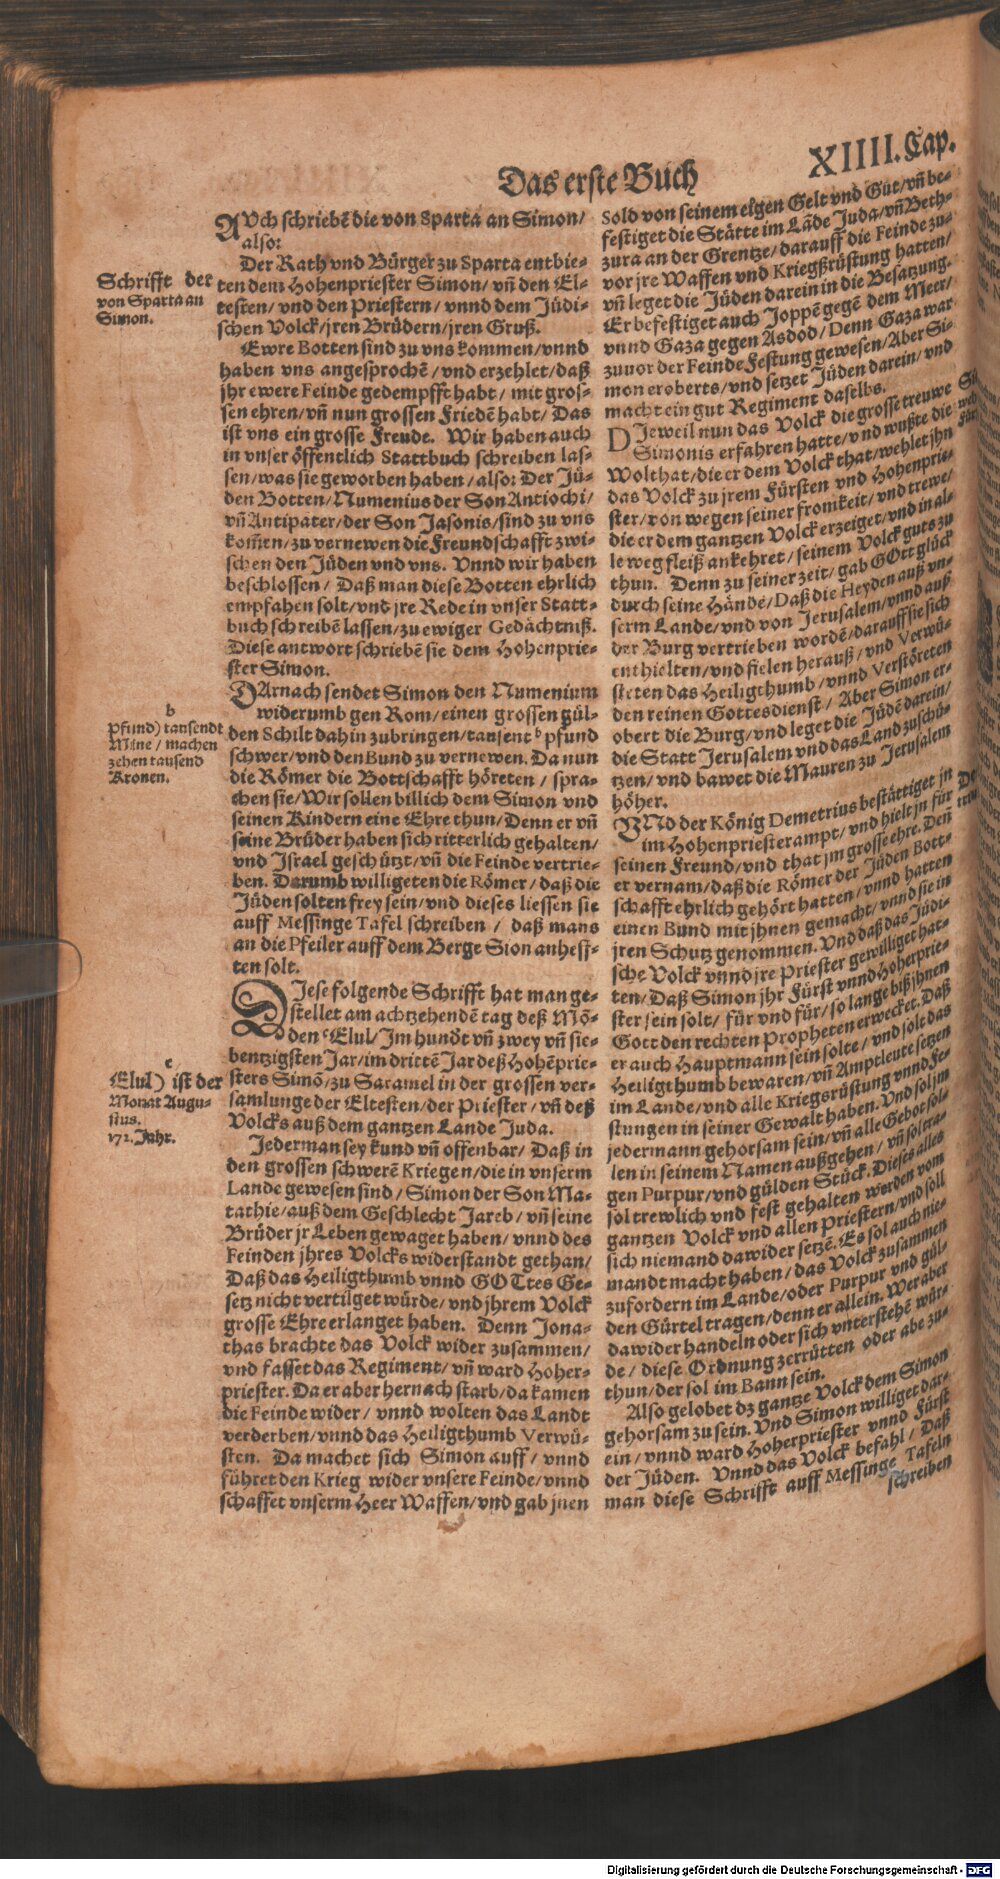 Das erste Buch
XIIII. Cap.
Schrifft der
von Sparta an
Simon.
AVch schriebẽ die von Sparta an Simon/
also:
Der Rath vnd Bürger zu Sparta entbie-
ten dem Hohenpriester Simon/ vñ den El-
testen/ vnd den Priestern/ vnnd dem Jüdi-
schen Volck/ jren Brüdern/ jren Gruß.
Ewre Botten sind zu vns kommen/ vnnd
haben vns angesprochẽ/ vnd erzehlet/ daß
jhr ewere Feinde gedempfft habt/ mit gros-
sen ehren/ vñ nun grossen Friedẽ habt/ Das
ist vns ein grosse Freude. Wir haben auch
in vnser öffentlich Stattbuch schreiben las-
sen/ was sie geworben haben/ also: Der Jü-
den Botten/ Numenius der Son Antiochi/
vñ Antipater/ der Son Jasonis/ sind zu vns
kom̃en/ zu vernewen die Freundschafft zwi-
schen den Jüden vnd vns. Vnnd wir haben
beschlossen/ Daß man diese Botten ehrlich
empfahen solt/ vnd jre Rede in vnser Statt-
buch schreibẽ lassen/ zu ewiger Gedächtniß.
Diese antwort schriebẽ sie dem Hohenprie-
ster Simon.
b
Pfund) tausendt
Mine/ machen
zehen tausend
Kronen.
DArnach sendet Simon den Numenium
widerumb gen Rom/ einen grossen gül-
den Schilt dahin zubringen/ tausent b pfund
schwer/ vnd den Bund zu vernewen. Da nun
die Römer die Bottschafft höreten/ spra-
chen sie/ Wir sollen billich dem Simon vnd
seinen Kindern eine Ehre thun/ Denn er vñ
seine Brüder haben sich ritterlich gehalten/
vnd Israel geschützt/ vñ die Feinde vertrie-
ben. Darumb willigeten die Römer/ daß die
Jüden solten frey sein/ vnd dieses liessen sie
auff Messinge Tafel schreiben/ daß mans
an die Pfeiler auff dem Berge Sion anheff-
ten solt.
c
(Elul) ist der
Monat Augu-
stus.
172. Jahr.
DJese folgende Schrifft hat man ge-
stellet am achtzehendẽ tag deß Mõ-
den c Elul/ Im hundt vñ zwey vñ sie-
bentzigsten Jar/ im drittẽ Jar deß Hohẽprie-
sters Simõ/ zu Saramel in der grossen ver-
samlunge der Eltesten/ der Priester/ vñ deß
Volcks auß dem gantzen Lande Juda.
Jederman sey kund vñ offenbar/ Daß in
den grossen schwerẽ Kriegen/ die in vnserm
Lande gewesen sind/ Simon der Son Ma-
tathie/ auß dem Geschlecht Jareb/ vñ seine
Brüder jr Leben gewaget haben/ vnnd des
Feinden jhres Volcks widerstandt gethan/
Daß das Heiligthumb vnnd GOTtes Ge-
setz nicht vertilget würde/ vnd jhrem Volck
grosse Ehre erlanget haben. Denn Jona-
thas brachte das Volck wider zusammen/
vnd fasset das Regiment/ vñ ward Hoher-
priester. Da er aber hernach starb/ da kamen
die Feinde wider/ vnnd wolten das Landt
verderben/ vnnd das Heiligthumb Verwü-
sten. Da machet sich Simon auff/ vnnd
führet den Krieg wider vnsere Feinde/ vnnd
schaffet vnserm Heer Waffen/ vnd gab jnen
Sold von seinem eigen Gelt vnd Gut/ vñ be-
festiget die Stätte im Lãde Juda/ vñ Beth-
zura an der Grentze/ darauff die Feinde zu-
vor jre Waffen vnd Kriegßrüstung hatten/
vñ leget die Jüden darein in die Besatzung.
Er befestiget auch Joppẽ gegẽ dem Meer/
vnnd Gaza gegen Asdod/ Denn Gaza war
zuuor der Feinde Festung gewesen/ Aber Si-
mon eroberts/ vnd setzet Jüden darein/ vnd
macht ein gut Regiment daselbs.
DJeweil nun das Volck die grosse treuwe
Simonis erfahren hatte/ vnd wußte die
Wolthat/ die er dem Volck that/ wehlet jhn
das Volck zu jrem Fürsten vnd Hohenprie-
ster/ von wegen seiner fromkeit/ vnd trewe/
die er dem gantzen Volck erzeiget/ vnd in al-
le weg fleiß ankehret/ seinem Volck guts zu
thun. Denn zu seiner zeit/ gab GOtt glück
durch seine Hände/ Daß die Heyden auß vn-
serm Lande/ vnd von Jerusalem/ vnnd auß
der Burg vertrieben wordẽ/ darauff sie sich
enthielten/ vnd fielen herauß/ vnd Verwü-
steten das Heiligthumb/ vnnd Verstöreten
den reinen Gottesdienst/ Aber Simon er-
obert die Burg/ vnd leget die Jüdẽ darein/
die Statt Jerusalem vnd das Land zuschü-
tzen/ vnd bawet die Mauren zu Jerusalem
höher.
VNd der König Demetrius bestättiget jn
im Hohenpriesterampt/ vnd hielt jn für
seinen Freund/ vnd that jm grosse ehre. Deñ
er vernam/ daß die Römer der Jüden Bott-
schafft ehrlich gehört hatten/ vnnd hatten
einen Bund mit jhnen gemacht/ vnnd sie in
jren Schutz genommen. Vnd daß das Jüdi-
sche Volck vnnd jre Priester gewilliget hat-
ten/ Daß Simon jhr Fürst vnnd Hoherprie-
ster sein solt/ für vnd für/ so lange biß jhnen
Gott den rechten Propheten erwecket. Daß
er auch Hauptmann sein solte/ vnd solt das
Heiligthumb bewaren/ vñ Amptleute setzen
im Lande/ vnd alle Kriegsrüstung vnnd Fe-
stungen in seiner Gewalt haben. Vnd sol jm
jedermann gehorsam sein/ vñ alle Gebot sol-
len in seinem Namen außgehen/ vñ sol tra-
gen Purpur/ vnd gülden Stück. Dieses alles
sol trewlich vnd fest gehalten werden vom
gantzen Volck vnd allen Priestern/ vnd soll
sich niemand dawider setzẽ. Es sol auch nie-
mandt macht haben/ das Volck zusammen
zufordern im Lande/ oder Purpur vnd gül-
den Gürtel tragen/ denn er allein. Wer aber
dawider handeln oder sich vnterstehẽ wür-
de/ diese Ordnung zerrütten oder abe zu-
thun/ der sol im Bann sein.
Also gelobet dz gantze Volck dem Simon
gehorsam zu sein. Vnd Simon williget dar-
ein/ vnnd ward Hoherpriester vnnd Fürst
der Jüden. Vnnd das Volck befahl/ Daß
man diese Schrifft auff Messinge Tafeln
schreiben
Digitalisierung gefördert durch die Deutsche Forschungsgemeinschaft - DFG